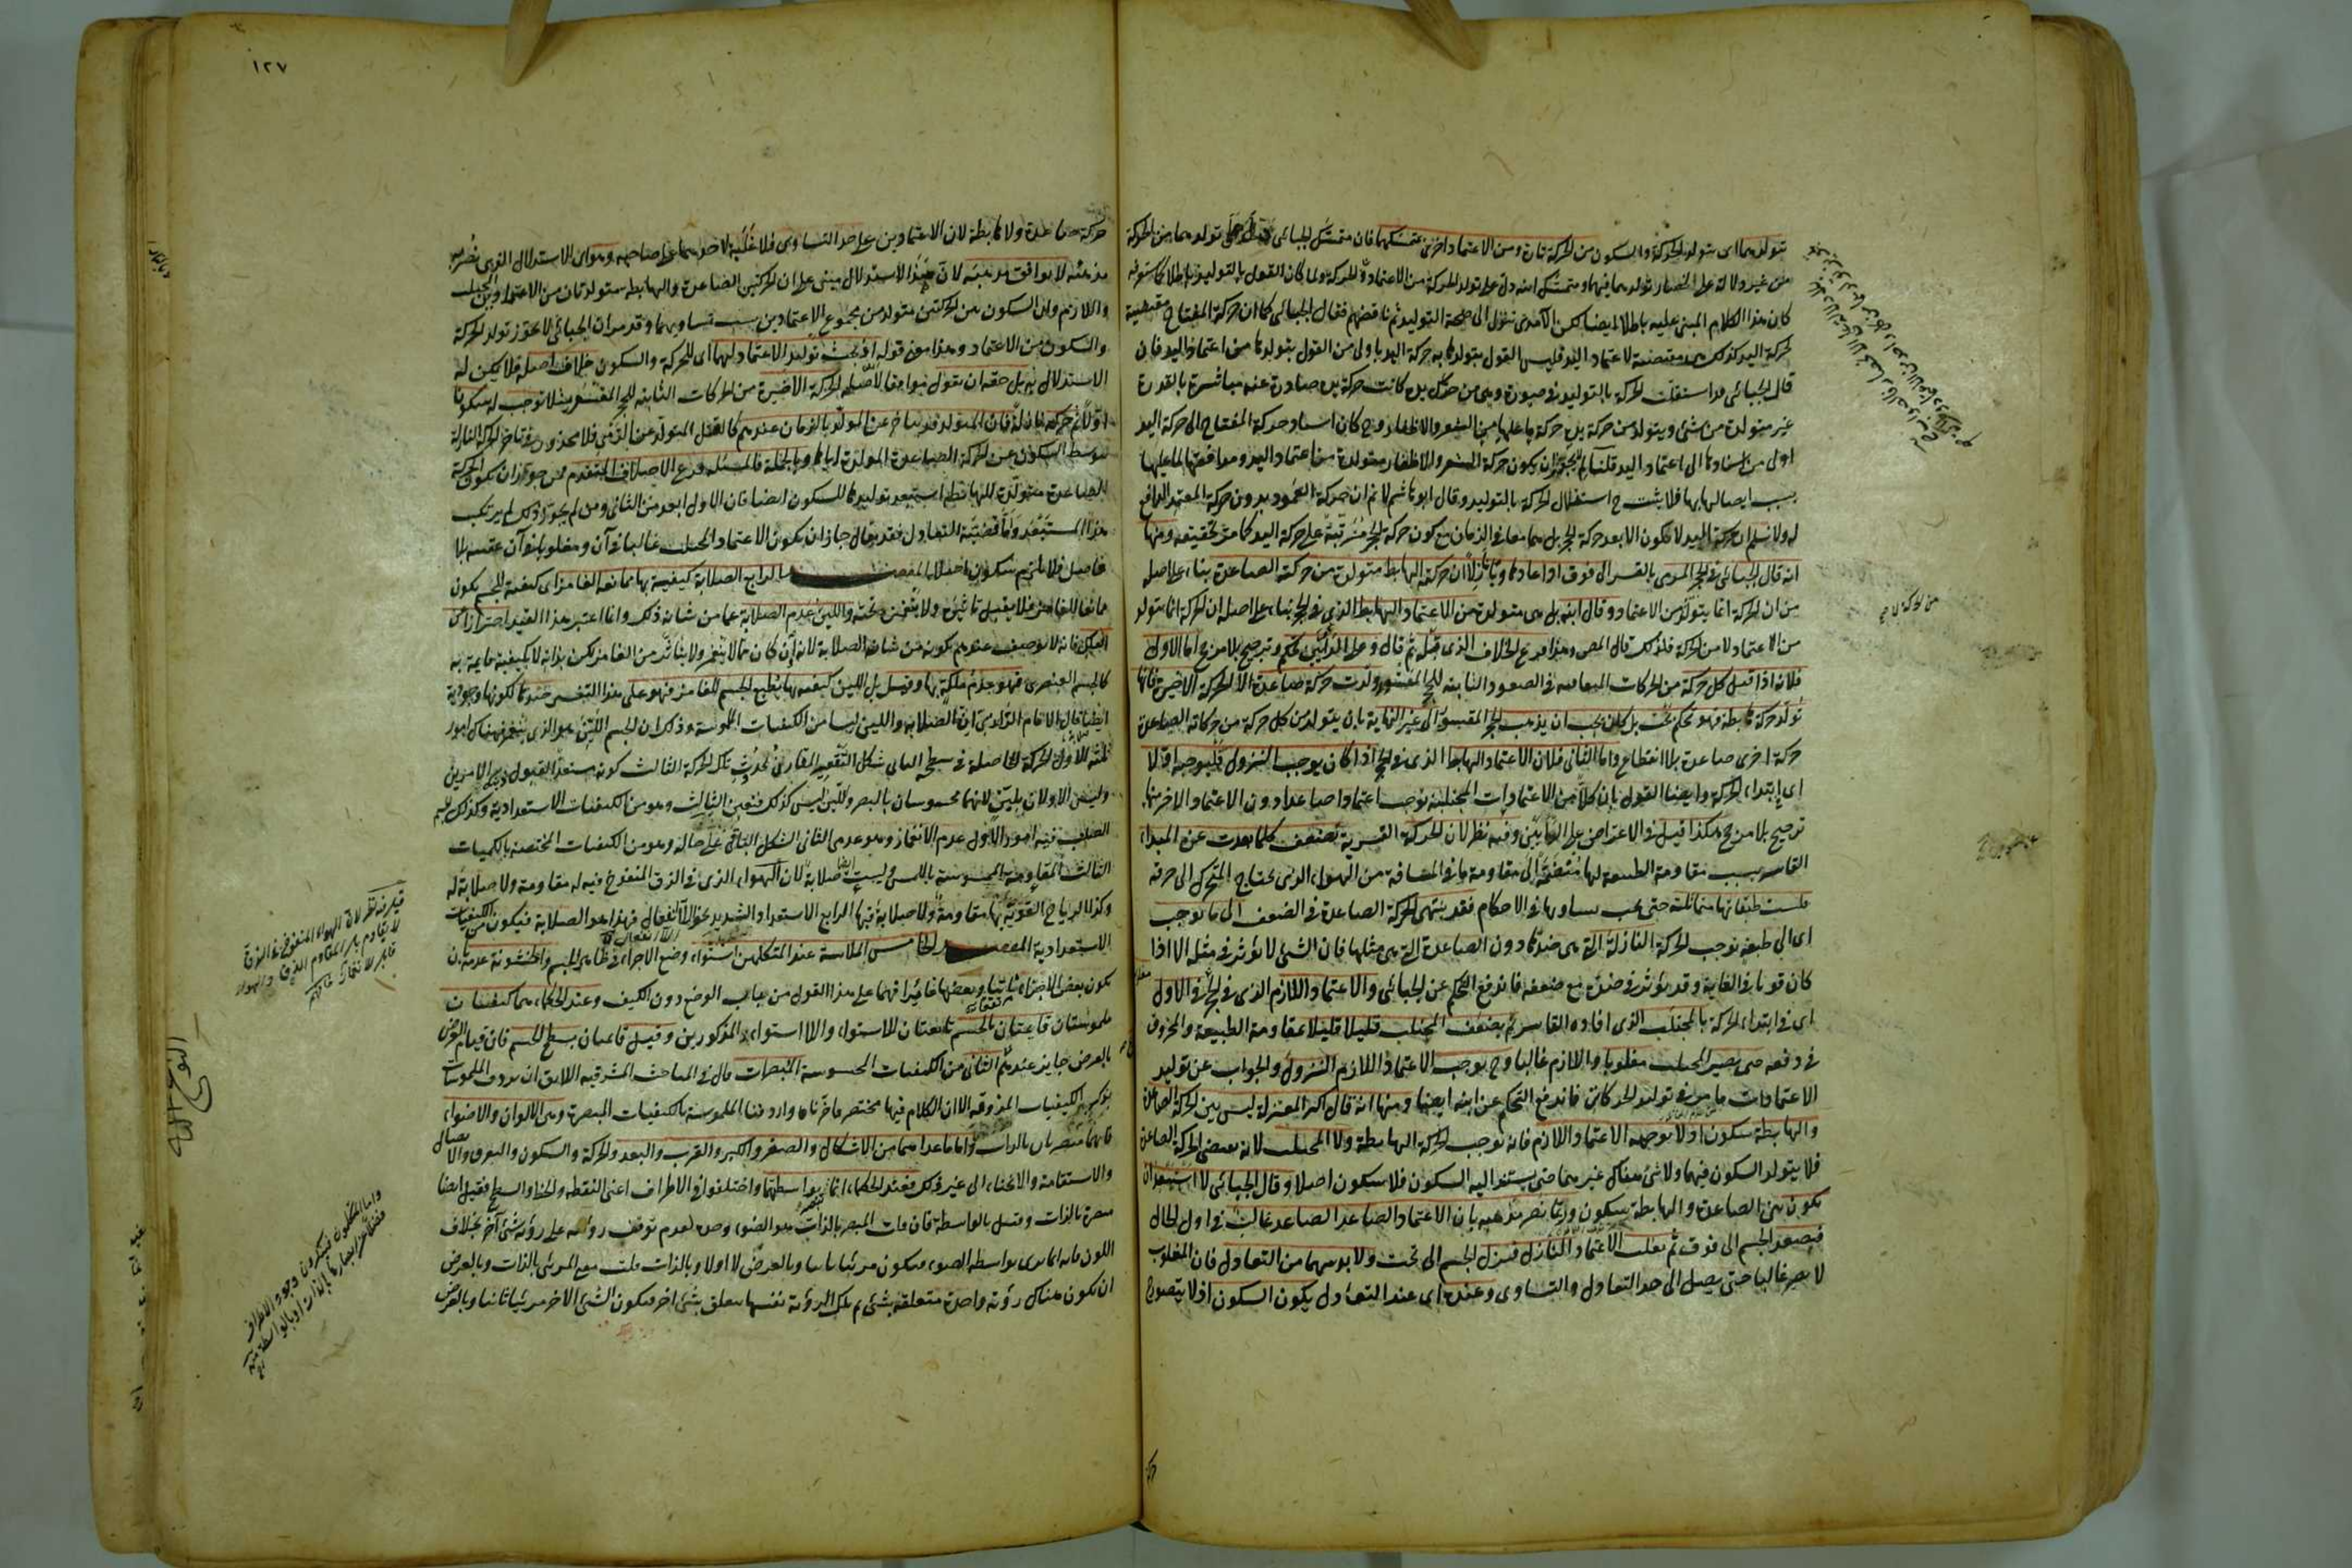 يتولد منهما اى يتولد الحركة والسكون من الحركة تارة ومن الاعتماد اخرى بتمسكهما فان متمسك الجبائى دل على تولدهما من الحركة
من غير دلالة على انحصار تولدهما فيها ومتمسك ابنه دل على تولد الحركة من الاعتماد دون الحركة ولما كان القول بالتوليد باطلا كما ستعرفه
كان هذا الكلام المبنى عليه باطلا ايضا لكن الآمدى تنزل الى صحة التوليد ثم ناقضهم فقال للجبائى كما ان حركة المفتاح مقتضية
لحركة اليد كذلك هى مقتضية لاعتماد اليد فليس القول بتولدها به حركة اليد باولى من القول بتولدها من اعتماد اليد فان
قال الجبائى قد استقلت الحركة بالتوليد فى صورة وهى من حرك يده كانت حركة يده صادرة عنه مباشرة بالقدرة
غير متولدة من شئ ويتولد من حركة يده حركة ما عليها من الشعر والاظفار وح كان اسناد حركة المفتاح الى حركة اليد
اولى من اسنادها الى اعتماد اليد قلنا لم لا يجوز ان يكون حركة الشعر والاظفار متولدة من اعتماد اليد ومدافعتها لما عليها
بسبب ايصالها بها فلا يثبت ح استقلال الحركة بالتوليد وقال ابو هاشم لا نم ان حركة العمود بدون حركة المعتمد الدافع
له ولا نسلم ان حركة اليد لا تكون الا بعد حركة الحجر بل هما معا فى الزمان مع كون حركة الحجر مترتبة على حركة اليد كما مر تحقيقه ومنها
انه قال الجبائى فى الحجر المرمى بالقسر الى فوق اذا عاد هاويا نازلا ان حركته الهابطة متولدة من حركته الصاعدة بناء على اصله
من ان الحركة انما يتولد من الاعتماد وقال ابنه بل هى متولدة من الاعتماد الهابط الذى فى الحجر بناء على اصله ان الحركة انما يتولد
من الاعتماد لا من الحركة فلذلك قال المص وهذا فرع الخلاف الذى قبله ثم قال وعلى الرأيين تحكم وترجيح بلا مرجح اما الاول
فلانه اذا قيل كل حركة من الحركات المتعاقبة فى الصعود الثابتة للحجر المقسور ولدت حركة صاعدة الا الحركة الاخيرة فانها
تولد حركة هابطة فهو تحكم بحت بل كان يجب ان يذهب الحجر المقسور الى غير النهاية بان يتولد من كل حركة من حركاته الصاعدة
حركة اخرى صاعدة بلا انقطاع واما الثانى فلان الاعتماد الهابط الذى فى الحجر اذا كان يوجب النزول فليوجبه اولا
اى ابتداء الحركة وايضا القول بان كلا من الاعتمادات المجتلبة توجب اعتمادا صاعدا دون الاعتماد الاخير منها
ترجيح بلا مرجح هكذا قيل فى الاعتراض على الرأيين وفيه نظر لان الحركة القسرية تضعف كلما بعدت عن المبداء
القاسر بسبب مقاومة الطبيعة لها منضمة الى مقاومة ما فى المسافة من الهواء الذى يحتاج المتحرك الى خرقه
فليست طبقاتها متماثلة حتى يجب تساويها فى الاحكام فقد ينتهى الحركة الصاعدة فى الضعف الى ما يوجب
اى الى طبقة توجب الحركة النازلة التى هى ضدها دون الصاعدة التى هى مثلها فان الشئ لا يؤثر فى مثله الا اذا
كان قويا فى الغاية وقد يؤثر فى ضده مع ضعفه فاندفع التحكم عن الجبائى والاعتماد اللازم الذى فى الحجر فى الاول
اى فى ابتداء الحركة بالمجتلب الذى افاده القاسر ثم يضعف المجتلب قليلا قليلا بمقاومة الطبيعة والخروق
فى دفعه حتى يصير المجتلب مغلوبا واللازم غالبا وح يوجب الاعتماد اللازم النزول والجواب عن توليد
الاعتمادات ما مر فى توليد الحركات فاندفع التحكم عن ابنه ايضا ومنها انه قال اكثر المعتزلة ليس بين الحركة الصاعدة
والهابطة سكون اذ لا يوجبه الاعتماد اللازم فانه يوجب الحركة الهابطة ولا المجتلب لانه يقتضى الحركة الصاعدة
فلا يتولد السكون فيهما ولا شئ هناك غيرهما حتى يستند اليه السكون فلا سكون اصلا وقال الجبائى لا استبعد ان
يكون بين الصاعدة والهابطة سكون وربما نصر مذهبه بان الاعتماد الصاعد غالب فى اول الحال
فيصعد الجسم الى فوق ثم يغلب الاعتماد النازل فينزل الجسم الى تحت ولا بد بينهما من التعادل فان المغلوب
لا يصير غالبا حتى يصل الى حد التعادل والتساوى وعنده اى عند التعادل يكون السكون اذ لا يتصور ح
١٢٧
حركة صاعدة ولا هابطة لان الاعتمادين على حد التساوى فلا غلبة لاحدهما على صاحبه وهو اى الاستدلال الذى نصر به
مذهبه لا يوافق مذهبه لان هذا الاستدلال مبنى على ان الحركتين الصاعدة والهابطة متولدتان من الاعتمادين المجتلب
واللازم وان السكون بين الحركتين متولد من مجموع الاعتمادين بسبب تساويهما وقد مر ان الجبائى لا يجوز تولد الحركة
والسكون من الاعتماد وهذا معنى قوله اذ بحث توليد الاعتماد لهما اى للحركة والسكون خلاف اصله فلا يمكن له
الاستدلال به بل حقه ان يقول موافقا لاصله الحركة الاخيرة من الحركات الثابتة للحجر المقسور مثلا توجب له سكونا
اولا ثم حركة نازلة فان المتولد قد يتأخر عن المولد بالزمان عندهم كالقتل المتولد عن الرمى فلا محذور فى تأخر الحركة النازلة
بتوسط السكون عن الحركة الصاعدة المولدة اياها وبالجملة فالمسئلة فرع الاختلاف المتقدم فمن جوز ان يكون الحركة
الصاعدة متولدة للهابطة لم يستبعد توليدها للسكون ايضا فان الاول ابعد من الثانى ومن لم يجوز ذلك لم يرتكب
هذا المستبعد واما قضية التعادل فقد يقال جاز ان يكون الاعتماد المجتلب غالبا فى آن ومغلوبا فى آن عقيبه بلا
فاصل فلا يلزم سكون اصلا المقصد الرابع الصلابة كيفية بها ممانعة الغامز اى كيفية للجسم يكون
ممانعا للغامز فلا يقبل تأثيره ولا ينغمز تحته واللين عدم الصلابة عما من شانه ذلك وانما اعتبر هذا القيد احترازا عن
الفلك فانه لا يوصف عندهم بكونه من شانه الصلابة لانه وان كان مما لا ينغمز ولا يتأثر من الغامز لكن بذاته لا بكيفية قائمة به
كالجسم العنصرى فهو عدم ملكة لها وقيل بل اللين كيفية بها يطيع الجسم للغامز فهو على هذا التفسير ضدها لكونها وجودية
ايضا قال الامام الرازى ان الصلابة واللين ليسا من الكيفيات الملموسة وذلك ان الجسم اللين هو الذى ينغمز فهناك امور
ثلثة الاول الحركة الحاصلة فى سطحه الثانى شكل التقعير المقارن لحدوث تلك الحركة الثالث كونه مستعدا لقبول ذينك الامرين
وليس الاولان بلين لانهما محسوسان بالبصر واللين ليس كذلك فتعين الثالث وهو من الكيفيات الاستعدادية وكذلك الجسم
الصلب فيه امور الاول عدم الانغماز وهو عدمى الثانى الشكل الباقى على حاله وهو من الكيفيات المختصة بالكميات
الثالث المقاومة المحسوسة باللمس وليست ايضا صلابة لان الهواء الذى فى الزق المنفوخ فيه له مقاومة ولا صلابة له
وكذا الرياح القوية لها مقاومة ولا صلابة فيها الرابع الاستعداد الشديد نحو اللا انفعال فهذا هو الصلابة فيكون من الكيفيات
الاستعدادية المقصد الخامس الملاسة عند المتكلمين استواء وضع الاجزاء فى ظاهر الجسم والخشونة عدمه بان
يكون بعض الاجزاء ناتيا وبعضها غائرا فهما على هذا القول من باب الوضع دون الكيف وعند الحكماء هما كيفيتان
ملموستان قائمتان بالجسم تابعتان للاستواء واللا استواء المذكورين وقيل قائمتان بسطح الجسم فان قيام العرض
بالعرض جايز عندهم الثانى من الكيفيات المحسوسة المبصرات قال فى المباحث المشرقية اللايق ان يردف الملموسات
بذكر الكيفيات المذوقة الا ان الكلام فيها مختصر فاخرناها واردفنا الملموسة بالكيفيات المبصرة وهى الالوان والاضواء
فانهما مبصران بالذات واما ما عداهما من الاشكال والصغر والكبر والقرب والبعد والحركة والسكون والتفرق والاتصال
والاستقامة والانحناء الى غير ذلك فعند الحكماء انما يبصر بواسطتهما واختلفوا فى الاطراف اعنى النقطة والخط والسطح فقيل ايضا
مبصرة بالذات وقيل بالواسطة فان قلت المبصر بالذات هو الضوء وحده لعدم توقف رؤيته على رؤية شئ آخر بخلاف
اللون فانه انما يرى بواسطة الضوء فيكون مرئيا ثانيا وبالعرض لا اولا وبالذات قلت معنى المرئى بالذات وبالعرض
ان تكون هناك رؤية واحدة متعلقة بشئ ثم تلك الرؤية نفسها يتعلق بشئ اخر فيكون الشئ الاخر مرئيا ثانيا وبالعرض
قيل فيه نظر لان الهواء المنفوخ فى الزق
لا يقاوم بل المقاوم الزق والهواء
النوع الثانى
واما المتكلمون فينكرون وجود الاطراف
فضلا عن ابصارها بالذات او بالواسطة منه